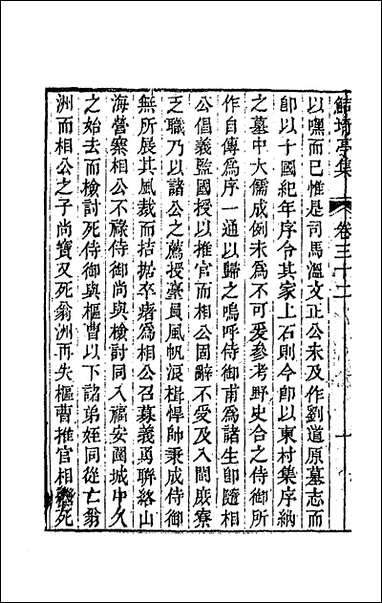 鮚埼亭集 卷三十二 十
以嘿而已惟是司馬溫文正公未及作劉道原墓志而
卽以十國紀年序令其家上石則今卽以東村集序納
之墓中大儒成例未為不可爰參考野史合之侍御所
作自傳為序一通以歸之嗚呼侍御甫為諸生卽隨相
公倡義監國授以推官而相公固辭不受及入閩庶寮
乏職乃以諸公之薦授臺員風帆浪楫悍帥乘成侍御
無所展其風裁而拮据卒瘏為相公召募義勇聯絡山
海營寨相公不祿侍御尚與檢討同入肅安圍城中久
之始去而檢討死侍御與樞曹以下諸弟姪同從亡翁
洲而相公之子尚寶又死翁洲再失樞曹推官相繼死